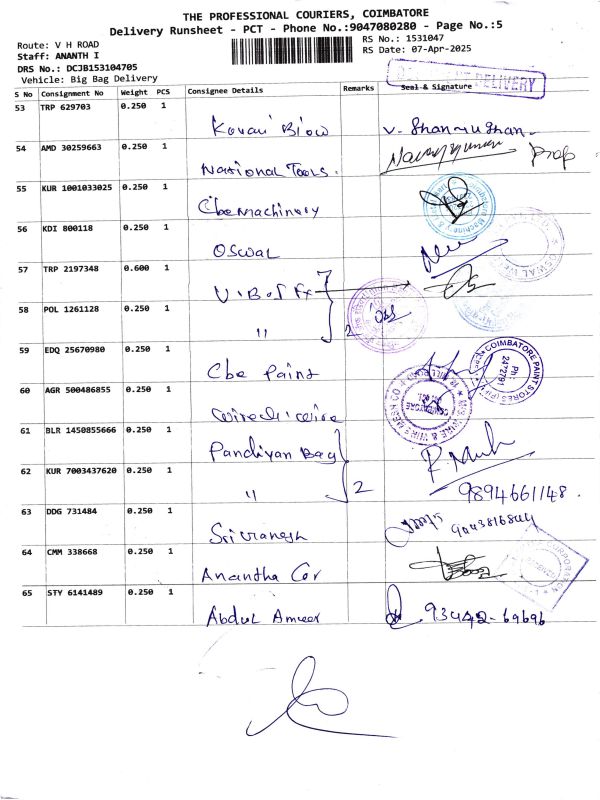 THE PROFESSIONAL COURIERS, COIMBATORE
Delivery Runsheet - PCT - Phone No.:9047080280 - Page No.:5
Route: V H ROAD
RS No.: 1531047
Staff: ANANTH I
RS Date: 07-Apr-2025
DRS No.: DCJB153104705
Vehicle: Big Bag Delivery
DELIVERY
S No Consignment No Weight PCS Consignee Details Remarks Seal & Signature
53 TRP 629703 0.250 1
Kovai Blow V. Shanmugham
54 AMD 30259663 0.250 1
National Tools. Prop
55 KUR 1001033025 0.250 1
Cbe Machinery
56 KDI 800118 0.250 1
Oswal
57 TRP 2197348 0.600 1
V.B.of Fx
58 POL 1261128 0.250 1
" 2
59 EDQ 25670980 0.250 1
Cbe Paint
COIMBATORE PAINT STORES
Ph: 2472791
60 AGR 500486855 0.250 1
WIRE & WIRE MESH CO
61 BLR 1450855666 0.250 1
Pandiyan Bag
62 KUR 7003437620 0.250 1
" 2 9894661148.
63 DDG 731484 0.250 1
64 CMM 338668 0.250 1
Anantha Cor
CORPORATION
65 STY 6141489 0.250 1
Abdul Ameer 93442-69696